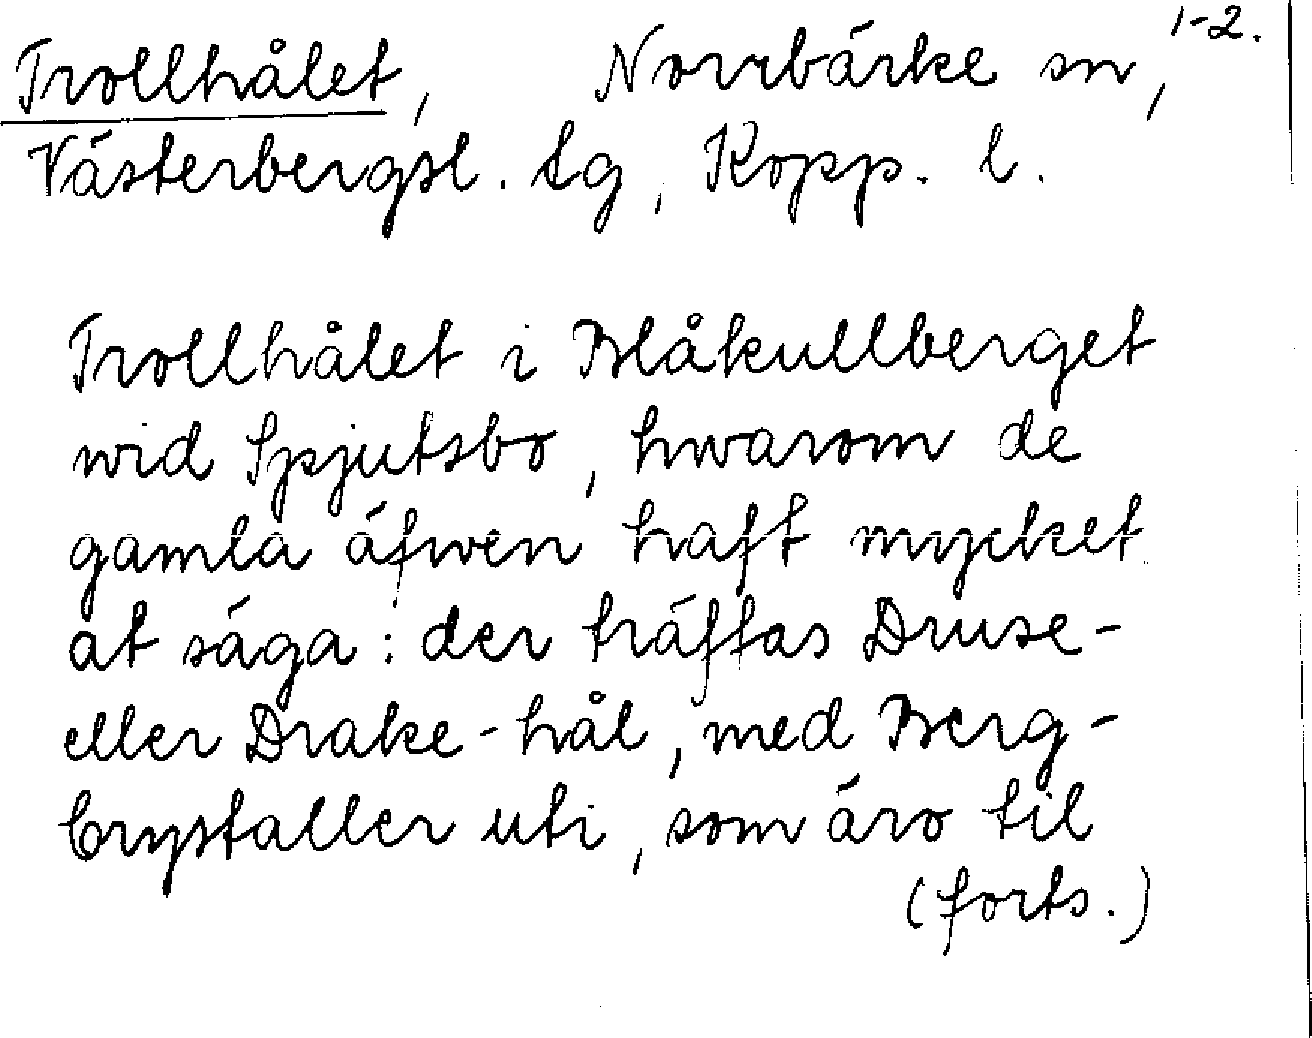 1-2.
Trollhålet, Norrbärke sn,
Västerbergsl. tg, Kopp. l.
Trollhålet i Blåkullberget
wid Spjutsbo, hwarom de
gamla äfwen haft mycket
at säga: der träffas Druse-
eller Drake-hål, med Berg-
Crystaller uti, som äro til
(forts.)